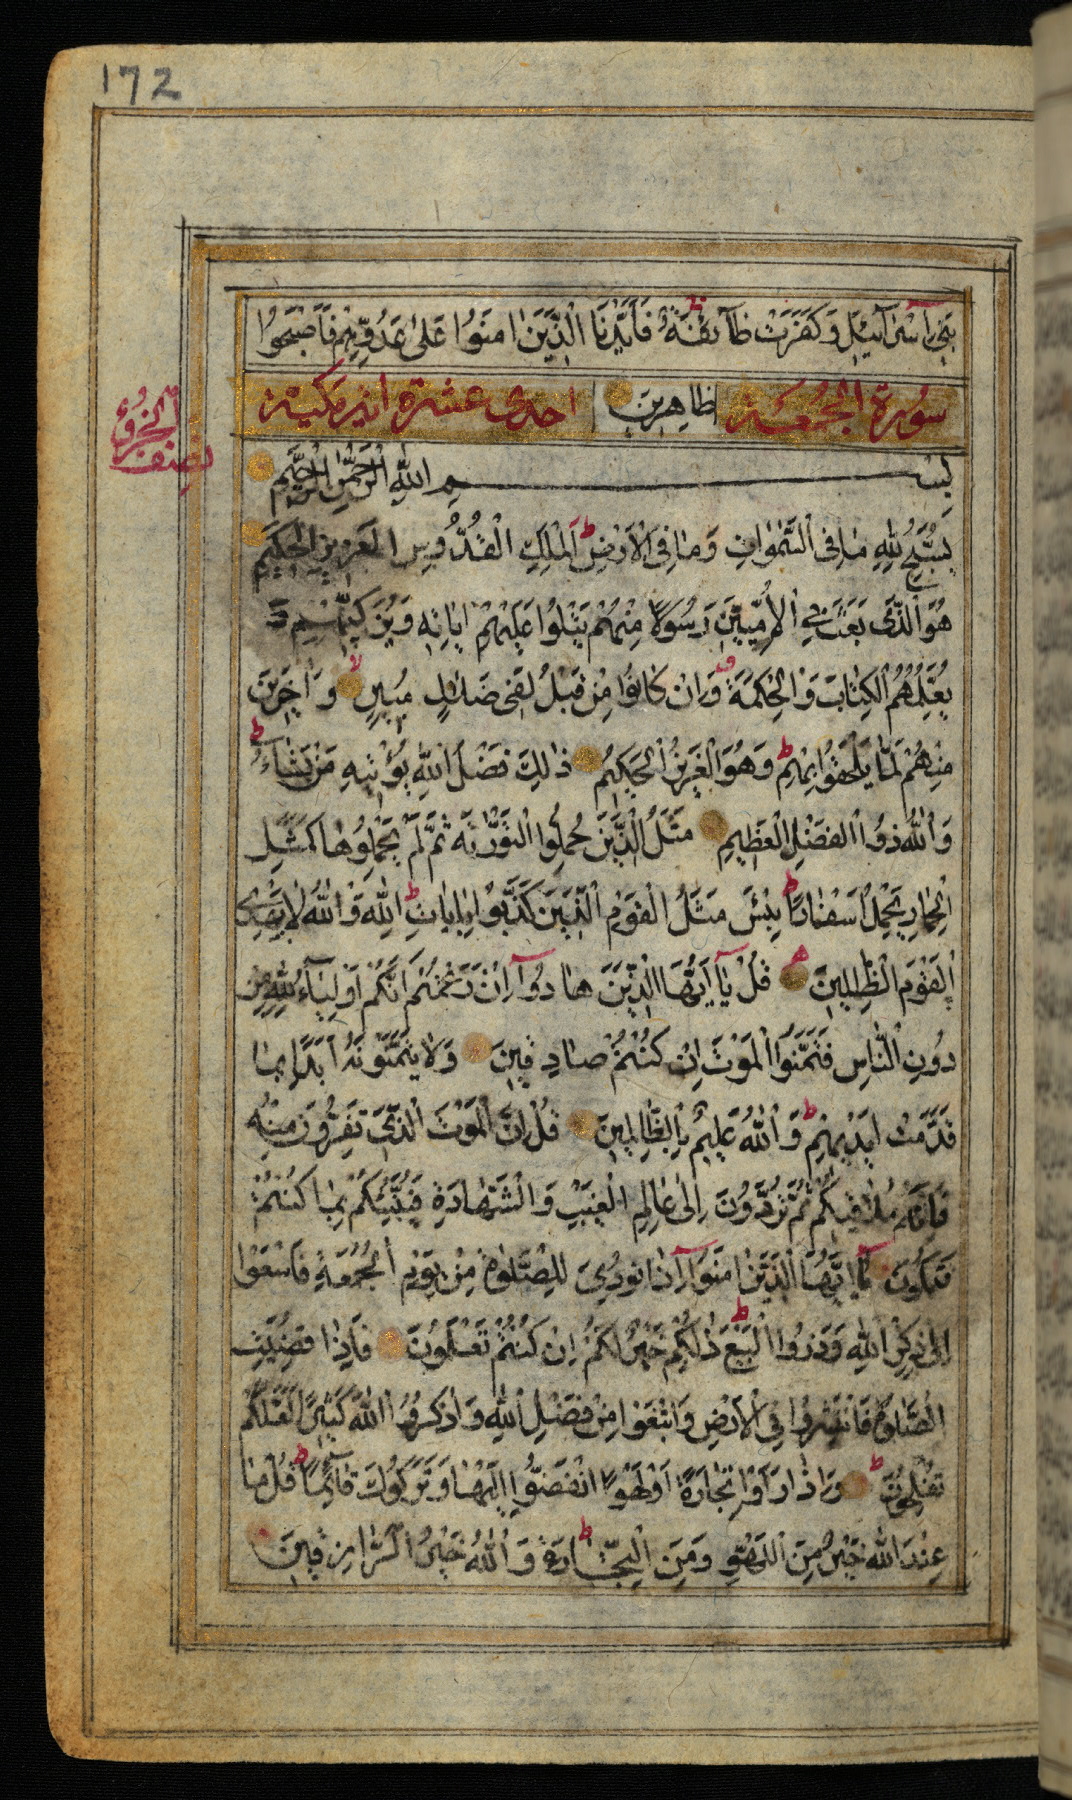 172
بَنِي إِسْرَآئِيلَ وَكَفَرَتْ طَآئِفَةٌ فَأَيَّدْنَا الَّذِينَ اٰمَنُوا عَلٰى عَدُوِّهِمْ فَأَصْبَحُوا
سورة الجمعة ظَاهِرِينَ احدى عشرة اية مكية
نصف الجزؤ
بِسْمِ اللّٰهِ الرَّحْمٰنِ الرَّحِيمِ
يُسَبِّحُ لِلّٰهِ مَا فِي السَّمٰوَاتِ وَمَا فِي الْاَرْضِ ط الْمَلِكِ الْقُدُّوسِ الْعَزِيزِ الْحَكِيمِ
هُوَ الَّذِي بَعَثَ فِي الْأُمِّيِّينَ رَسُولًا مِنْهُمْ يَتْلُوا عَلَيْهِمْ اٰيَاتِهِ وَيُزَكِّيهِمْ وَ
يُعَلِّمُهُمُ الْكِتَابَ وَالْحِكْمَةَ ق وَاِنْ كَانُوا مِنْ قَبْلُ لَفِي ضَلَالٍ مُبِينٍ لا وَاٰخَرِينَ
مِنْهُمْ لَمَّا يَلْحَقُوا بِهِمْ ط وَهُوَ الْعَزِيزُ الْحَكِيمُ ذٰلِكَ فَضْلُ اللّٰهِ يُؤْتِيهِ مَنْ يَشَاءُ ط
وَاللّٰهُ ذُوا الْفَضْلِ الْعَظِيمِ مَثَلُ الَّذِينَ حُمِّلُوا التَّوْرٰيةَ ثُمَّ لَمْ يَحْمِلُوهَا كَمَثَلِ
الْحِمَارِ يَحْمِلُ اَسْفَارًا ط بِئْسَ مَثَلُ الْقَوْمِ الَّذِينَ كَذَّبُوا بِاٰيَاتِ اللّٰهِ ط وَاللّٰهُ لَا يَهْدِي
الْقَوْمَ الظّٰلِمِينَ قُلْ يَآ اَيُّهَا الَّذِينَ هَادُوآ اِنْ زَعَمْتُمْ اَنَّكُمْ اَوْلِيَآءُ لِلّٰهِ مِنْ
دُونِ النَّاسِ فَتَمَنَّوُا الْمَوْتَ اِنْ كُنْتُمْ صَادِقِينَ وَلَا يَتَمَنَّوْنَهُ اَبَدًا بِمَا
قَدَّمَتْ اَيْدِيهِمْ ط وَاللّٰهُ عَلِيمٌ بِالظَّالِمِينَ قُلْ اِنَّ الْمَوْتَ الَّذِي تَفِرُّونَ مِنْهُ
فَاِنَّهُ مُلَاقِيكُمْ ثُمَّ تُرَدُّونَ اِلٰى عَالِمِ الْغَيْبِ وَالشَّهَادَةِ فَيُنَبِّئُكُمْ بِمَا كُنْتُمْ
تَعْمَلُونَ يَآ اَيُّهَا الَّذِينَ اٰمَنُوآ اِذَا نُودِيَ لِلصَّلٰوةِ مِنْ يَوْمِ الْجُمُعَةِ فَاسْعَوْا
اِلٰى ذِكْرِ اللّٰهِ وَذَرُوا الْبَيْعَ ط ذٰلِكُمْ خَيْرٌ لَكُمْ اِنْ كُنْتُمْ تَعْلَمُونَ فَاِذَا قُضِيَتِ
الصَّلٰوةُ فَانْتَشِرُوا فِي الْاَرْضِ وَابْتَغُوا مِنْ فَضْلِ اللّٰهِ وَاذْكُرُوا اللّٰهَ كَثِيرًا لَعَلَّكُمْ
تُفْلِحُونَ ط وَاِذَا رَاَوْا تِجَارَةً اَوْ لَهْوًا انْفَضُّوا اِلَيْهَا وَتَرَكُوكَ قَائِمًا ط قُلْ مَا
عِنْدَ اللّٰهِ خَيْرٌ مِنَ اللَّهْوِ وَمِنَ التِّجَارَةِ ط وَاللّٰهُ خَيْرُ الرَّازِقِينَ